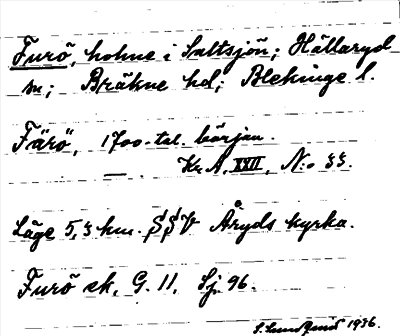 Furö, holme i Saltsjön; Hällaryd
sn; Bräkne hd; Blekinge l.
Färö, 1700-tal. början.
Kr. A. XXII, N:o 33.
Läge 5,3 km. SSV Åryds kyrka.
Furö ek, G. 11, Sj. 96.
1936.